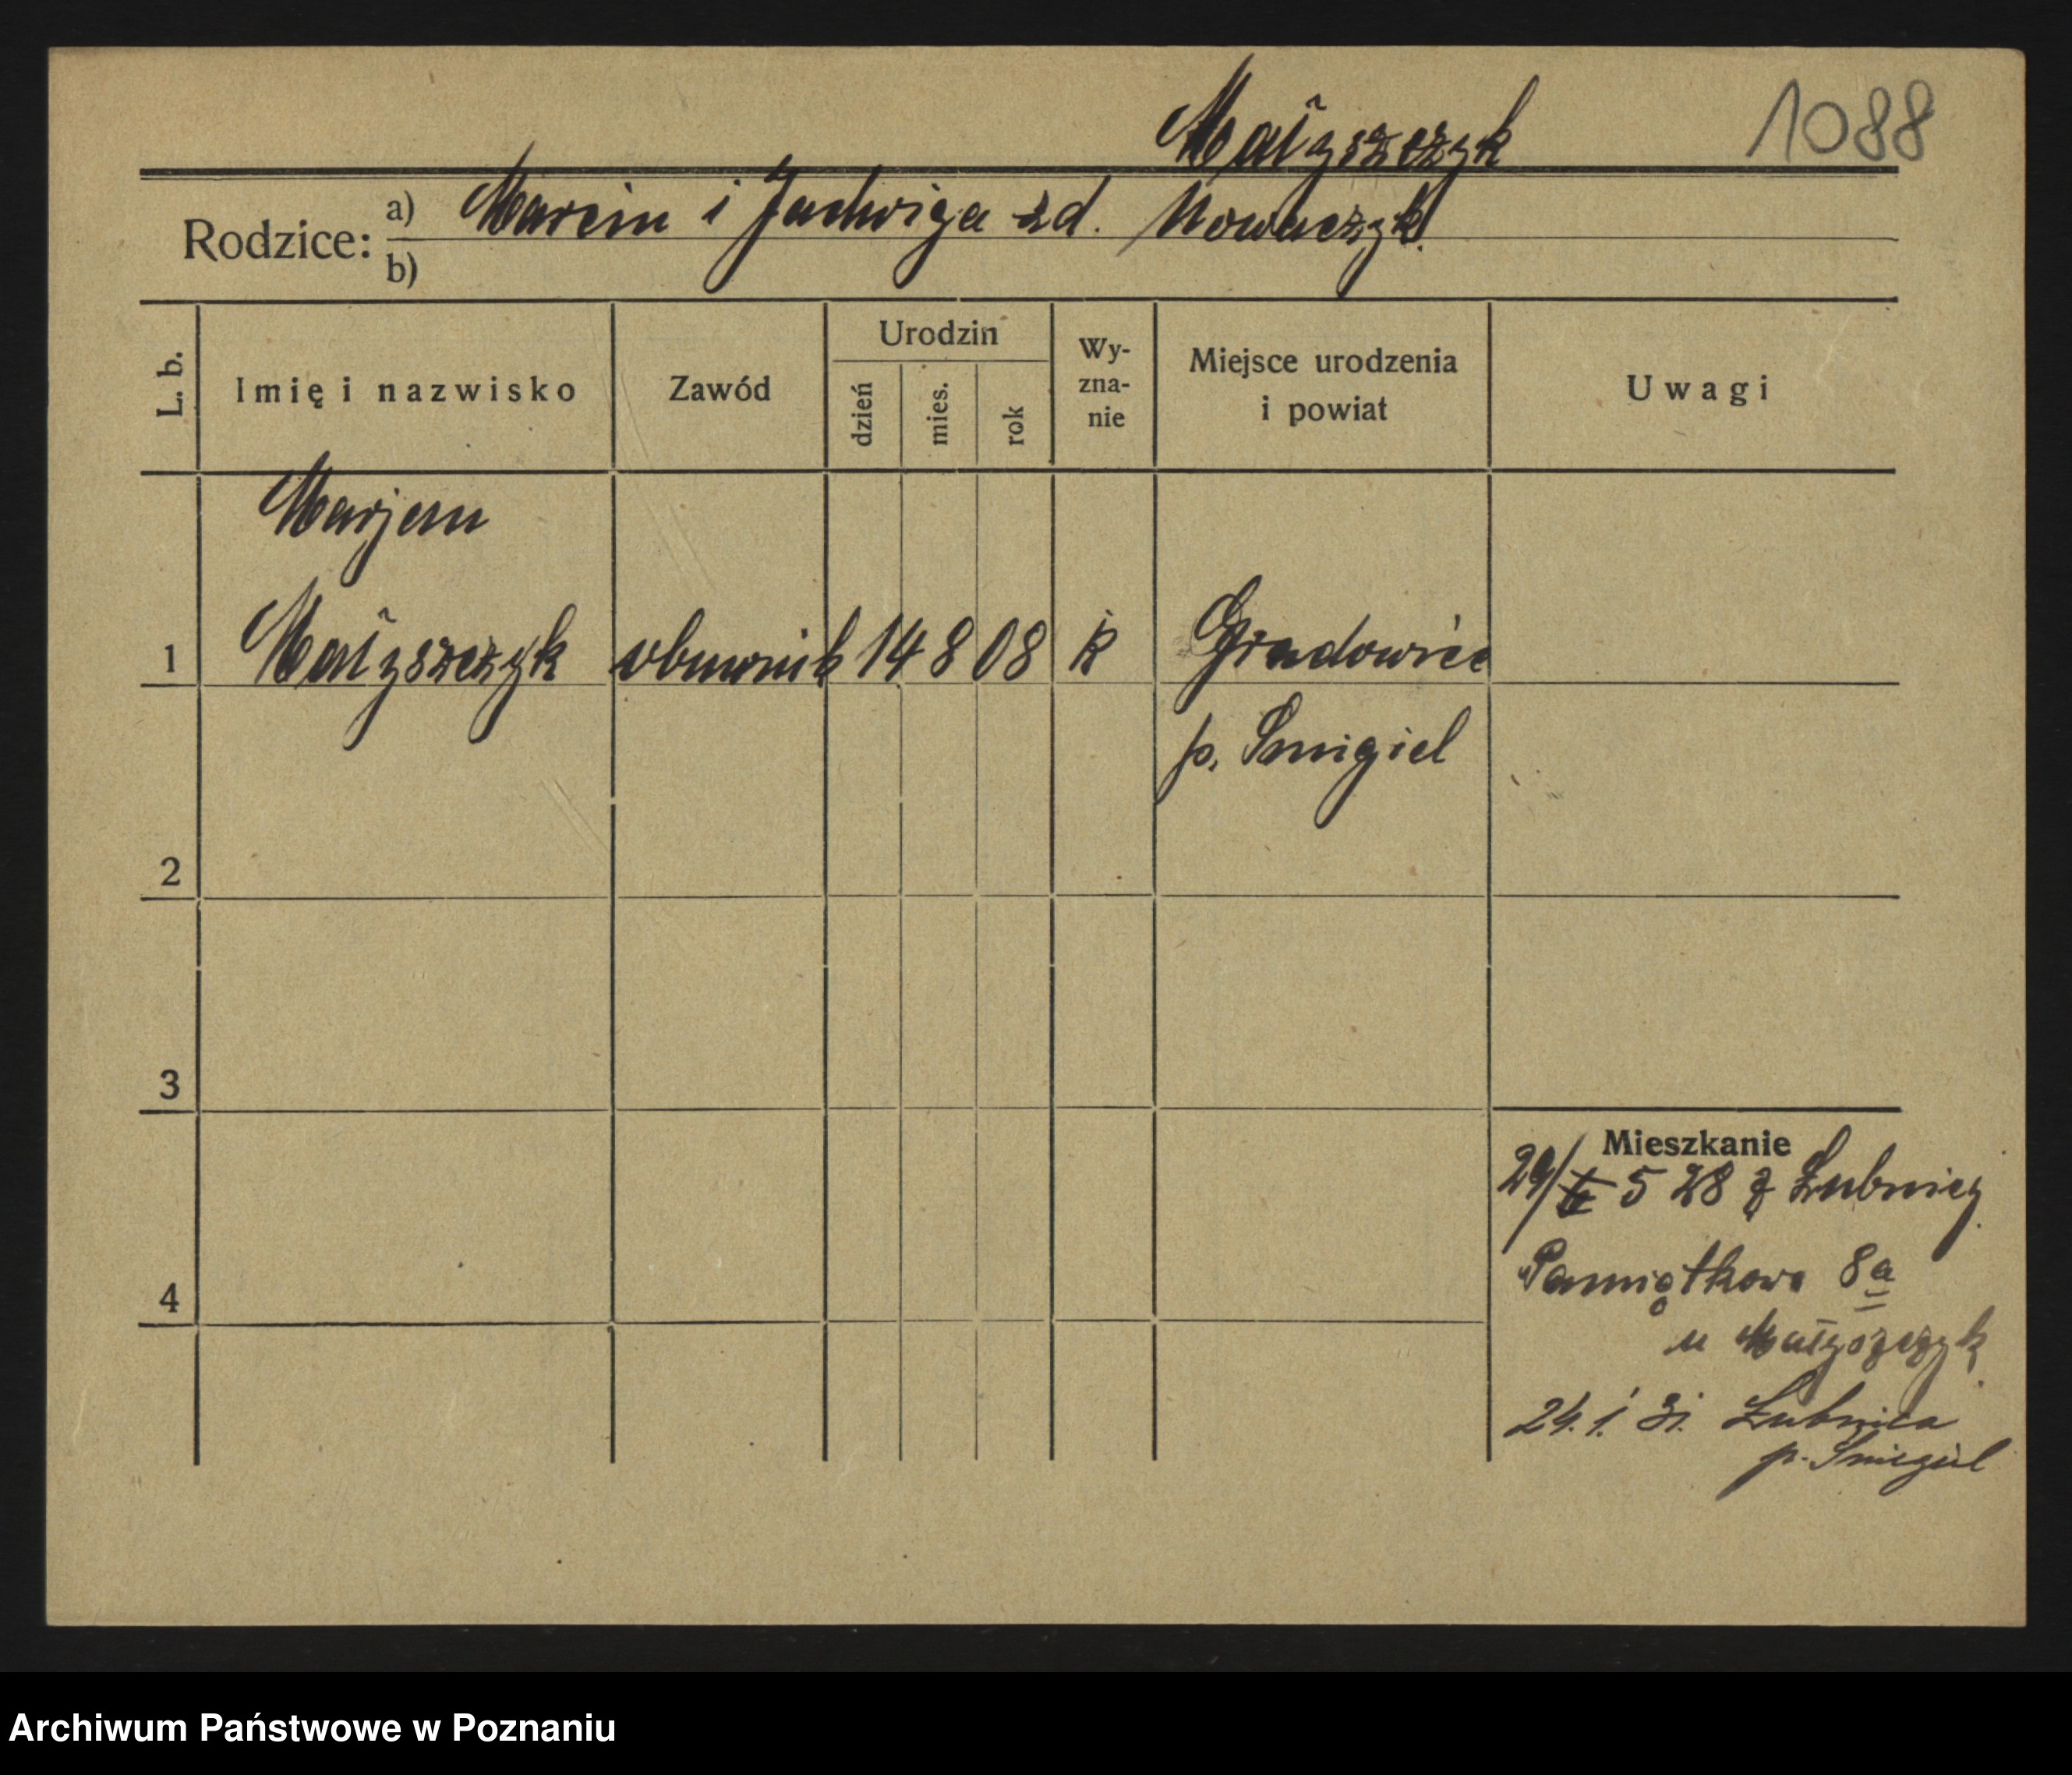 Małyszczyk
1088
Rodzice: a) Marcin i Jadwiga zd. Nowaczyk.
b)
L. b.
Imię i nazwisko
Zawód
Urodzin
dzień
mies.
rok
Wy-
zna-
nie
Miejsce urodzenia
i powiat
Uwagi
Marjan
1 Małyszczyk obuwnik 14 8 08 k Gradowice
p. Smigiel
2
3
4
Mieszkanie
29/ 5 28 z Łubnicy
Pamiątkowa 8a
u Małyszczyk
24.1. 31. Łubnica
p. Smigiel
Archiwum Państwowe w Poznaniu